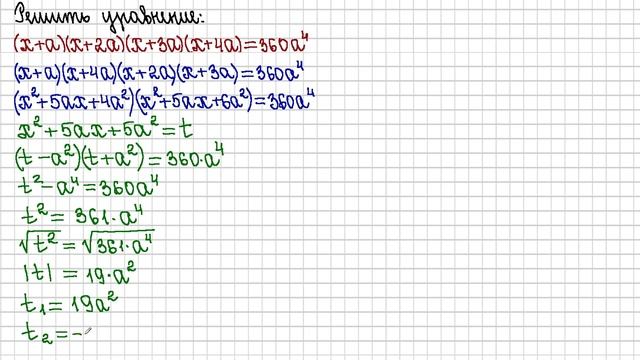 Решить уравнение:
(x+a)(x+2a)(x+3a)(x+4a)=360a⁴
(x+a)(x+4a)(x+2a)(x+3a)=360a⁴
(x²+5ax+4a²)(x²+5ax+6a²)=360a⁴
x²+5ax+5a²=t
(t-a²)(t+a²)=360·a⁴
t²-a⁴=360a⁴
t²=361·a⁴
√t²=√361·a⁴
|t|=19·a²
t₁=19a²
t₂=-